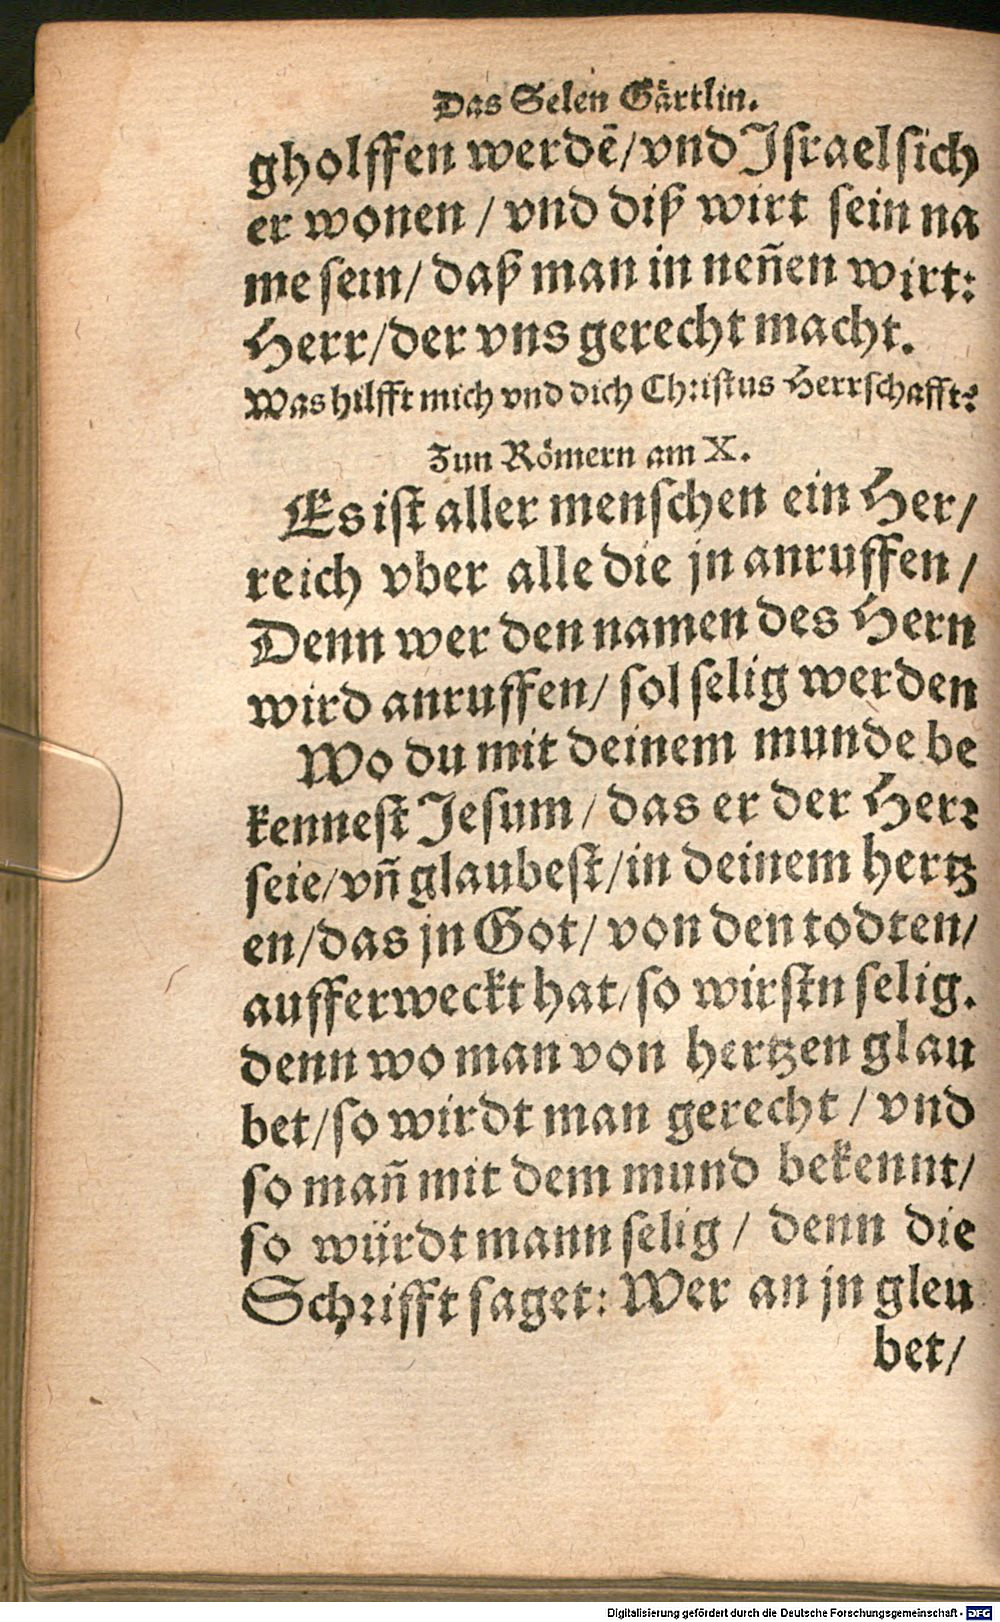 Das Selen Gärtlin.
gholffen werdē/vnd Israel sich
er wonen / vnd diß wirt sein na
me sein/ daß man in neñen wirt:
Herr/der vns gerecht macht.
Was hilfft mich vnd dich Christus Herrschafft?
Zun Römern am X.
Es ist aller menschen ein Her/
reich vber alle die jn anruffen /
Denn wer den namen des Hern
wird anruffen/ sol selig werden
Wo du mit deinem munde be
kennest Jesum / das er der Herr
seie/vñ glaubest/in deinem hertz
en/das jn Got/ von den todten/
aufferweckt hat/ so wirstn selig.
denn wo man von hertzen glau
bet/so wirdt man gerecht / vnd
so mañ mit dem mund bekennt/
so würdt mann selig / denn die
Schrifft saget: Wer an jn gleu
bet/
Digitalisierung gefördert durch die Deutsche Forschungsgemeinschaft - DFG